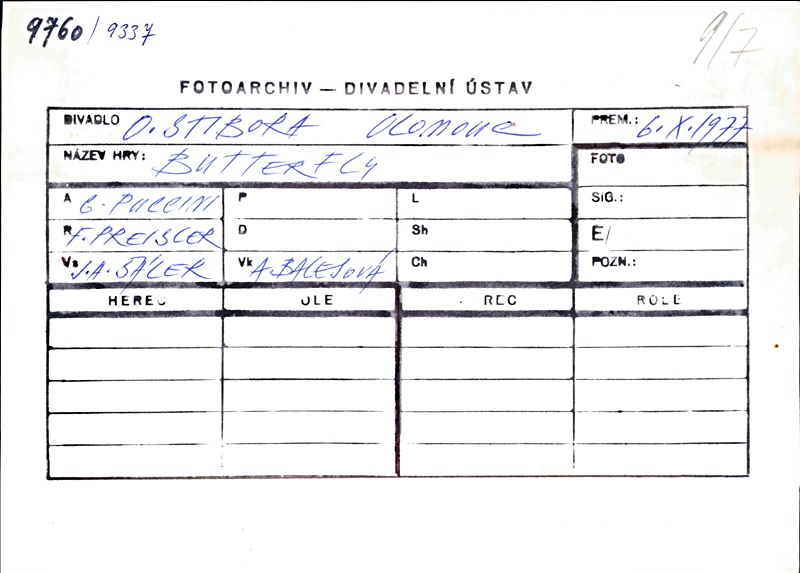 9760 / 9337
9/7
FOTOARCHIV — DIVADELNÍ ÚSTAV
DIVADLO O. STIBORA OLOMOUC PREM.: 6.X.1977
NÁZEV HRY: BUTTERFLY FOTO
A G. PUCCINI P L SIG.:
R F. PREISLER D Sh E/
Vs J.A. ŠÁLEK Vk A. BALEJOVÁ Ch POZN.:
HEREC OLE REC ROLE